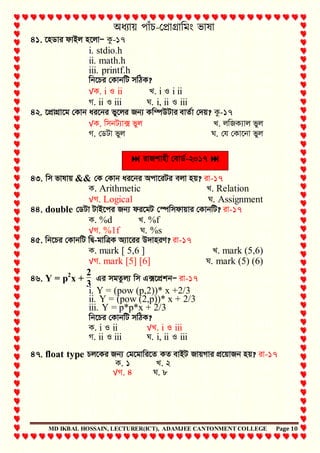 অধ্যায় পাঁচ-প্রোগ্রামিং ভাষা
৪১. হেডার ফাইল হলো– কু-১৭
i. stdio.h
ii. math.h
iii. printf.h
নিচের কোনটি সঠিক?
√ক. i ও ii খ. i ও i ii
গ. ii ও iii ঘ. i, ii ও iii
৪২. প্রোগ্রামে কোন ধরনের ভুলের জন্য কম্পিউটার বার্তা দেয়? কু-১৭
√ক. সিনট্যাক্স ভুল খ. লজিক্যাল ভুল
গ. ডেটা ভুল ঘ. যে কোনো ভুল
⏭ রাজশাহী বোর্ড-২০১৭ ⏮
৪৩. সি ভাষায় && কে কোন ধরনের অপারেটর বলা হয়? রা-১৭
ক. Arithmetic খ. Relation
√গ. Logical ঘ. Assignment
৪৪. double ডেটা টাইপের জন্য ফরমেট স্পেসিফায়ার কোনটি? রা-১৭
ক. %d খ. %f
√গ. %1f ঘ. %s
৪৫. নিচের কোনটি দ্বি-মাত্রিক অ্যারের উদাহরণ? রা-১৭
ক. mark [ 5,6 ] খ. mark (5,6)
√গ. mark [5] [6] ঘ. mark (5) (6)
৪৬. Y = p²x + 2/3 এর সমতুল্য সি এক্সপ্রেশন– রা-১৭
i. Y = (pow (p,2))* x +2/3
ii. Y = (pow (2,p))* x + 2/3
iii. Y = p*p*x + 2/3
নিচের কোনটি সঠিক?
ক. i ও ii √খ. i ও iii
গ. ii ও iii ঘ. i, ii ও iii
৪৭. float type চলকের জন্য মেমোরিতে কত বাইট জায়গার প্রয়োজন হয়? রা-১৭
ক. ১ খ. ২
√গ. ৪ ঘ. ৮
MD IKBAL HOSSAIN, LECTURER(ICT), ADAMJEE CANTONMENT COLLEGE Page 10